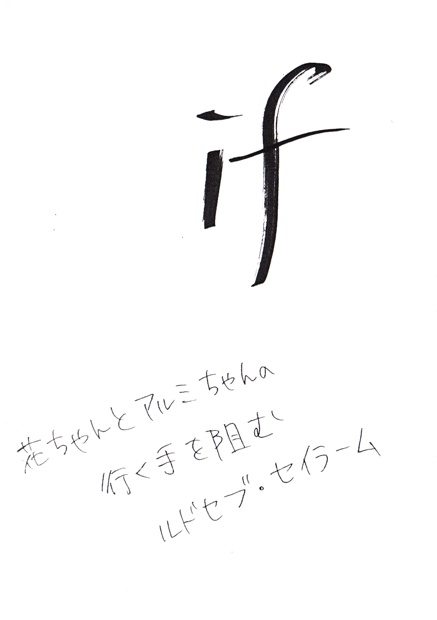 if
花ちゃんとアルミちゃんの
行く手を阻む
ルドセブ・セイラーム